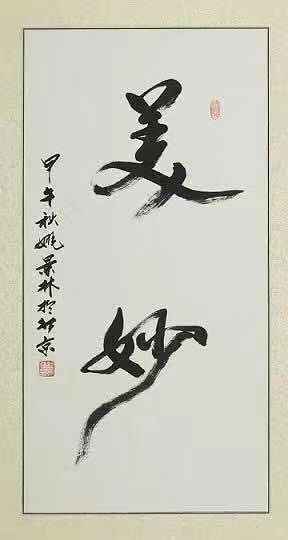 美妙
甲午秋姚景林於北京